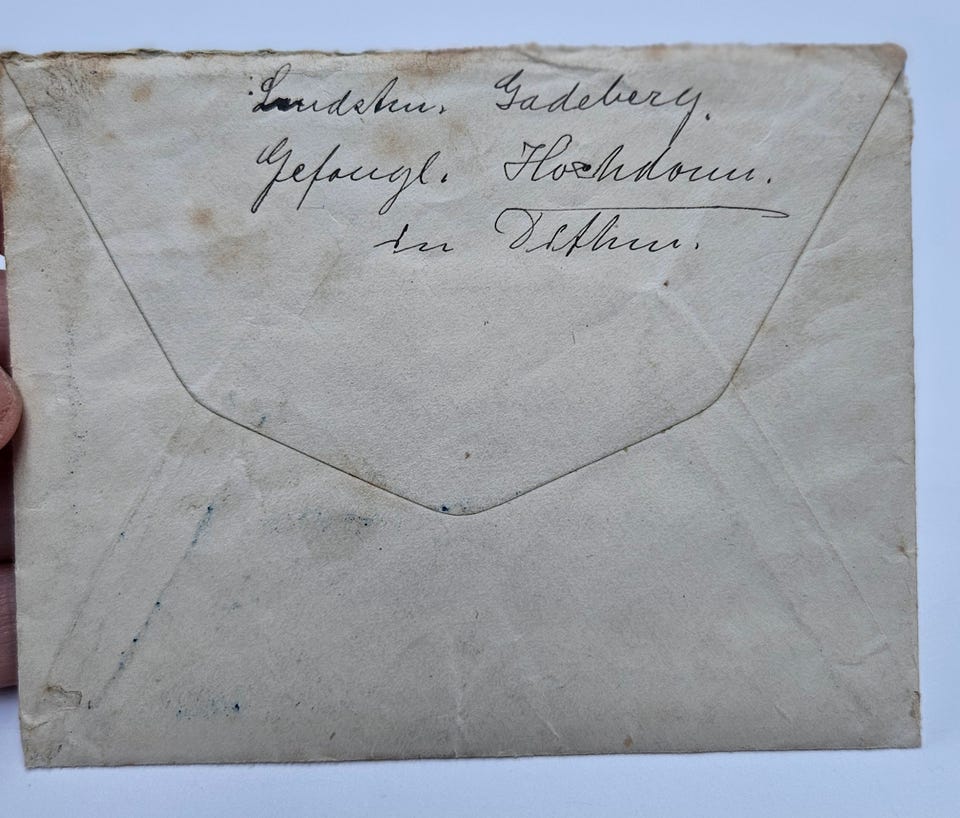 Landstm. Gadeberg.
Gefangl. Hochdonn.
in Dithm.